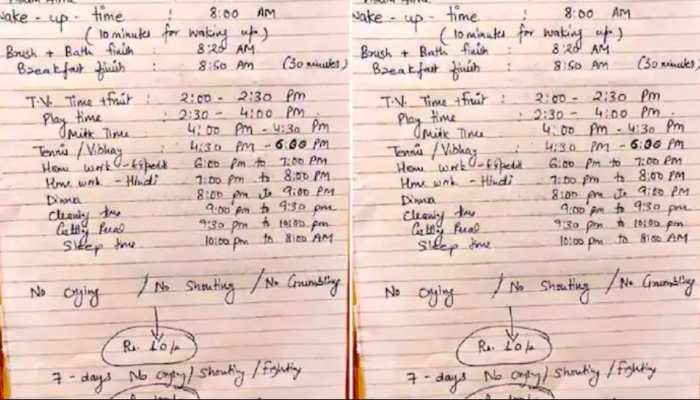 Wake - up - time : 8:00 AM
(10 minutes for waking up)
Brush + Bath finish : 8:20 AM
Breakfast finish : 8:50 AM (30 minutes)
T.V. Time + fruit : 2:00 - 2:30 Pm
Play time : 2:30 - 4:00 Pm
Milk Time 4:00 Pm - 4:30 Pm
Tennis / Vibhay : 4:30 Pm - 6:00 Pm
Home work - 6:00 Pm to 7:00 Pm
Home work - Hindi 7:00 Pm to 8:00 PM
Dinner 8:00 pm to 9:00 PM
Cleaning time 9:00 pm to 9:30 pm
9:30 pm to 10:00 pm
Sleep time 10:00 pm to 8:00 AM
No Crying / No Shouting / No Grumbling
Rs. 10/-
7 - days No crying / Shouting / Fighting
Wake - up - time : 8:00 AM
(10 minutes for waking up)
Brush + Bath finish : 8:20 AM
Breakfast finish : 8:50 AM (30 minutes)
T.V. Time + fruit : 2:00 - 2:30 Pm
Play time : 2:30 - 4:00 Pm
Milk Time 4:00 Pm - 4:30 Pm
Tennis / Vibhay : 4:30 Pm - 6:00 Pm
Home work - 6:00 Pm to 7:00 Pm
Home work - Hindi 7:00 Pm to 8:00 PM
Dinner 8:00 pm to 9:00 PM
Cleaning time 9:00 pm to 9:30 pm
9:30 pm to 10:00 pm
Sleep time 10:00 pm to 8:00 AM
No Crying / No Shouting / No Grumbling
Rs. 10/-
7 - days No crying / Shouting / Fighting